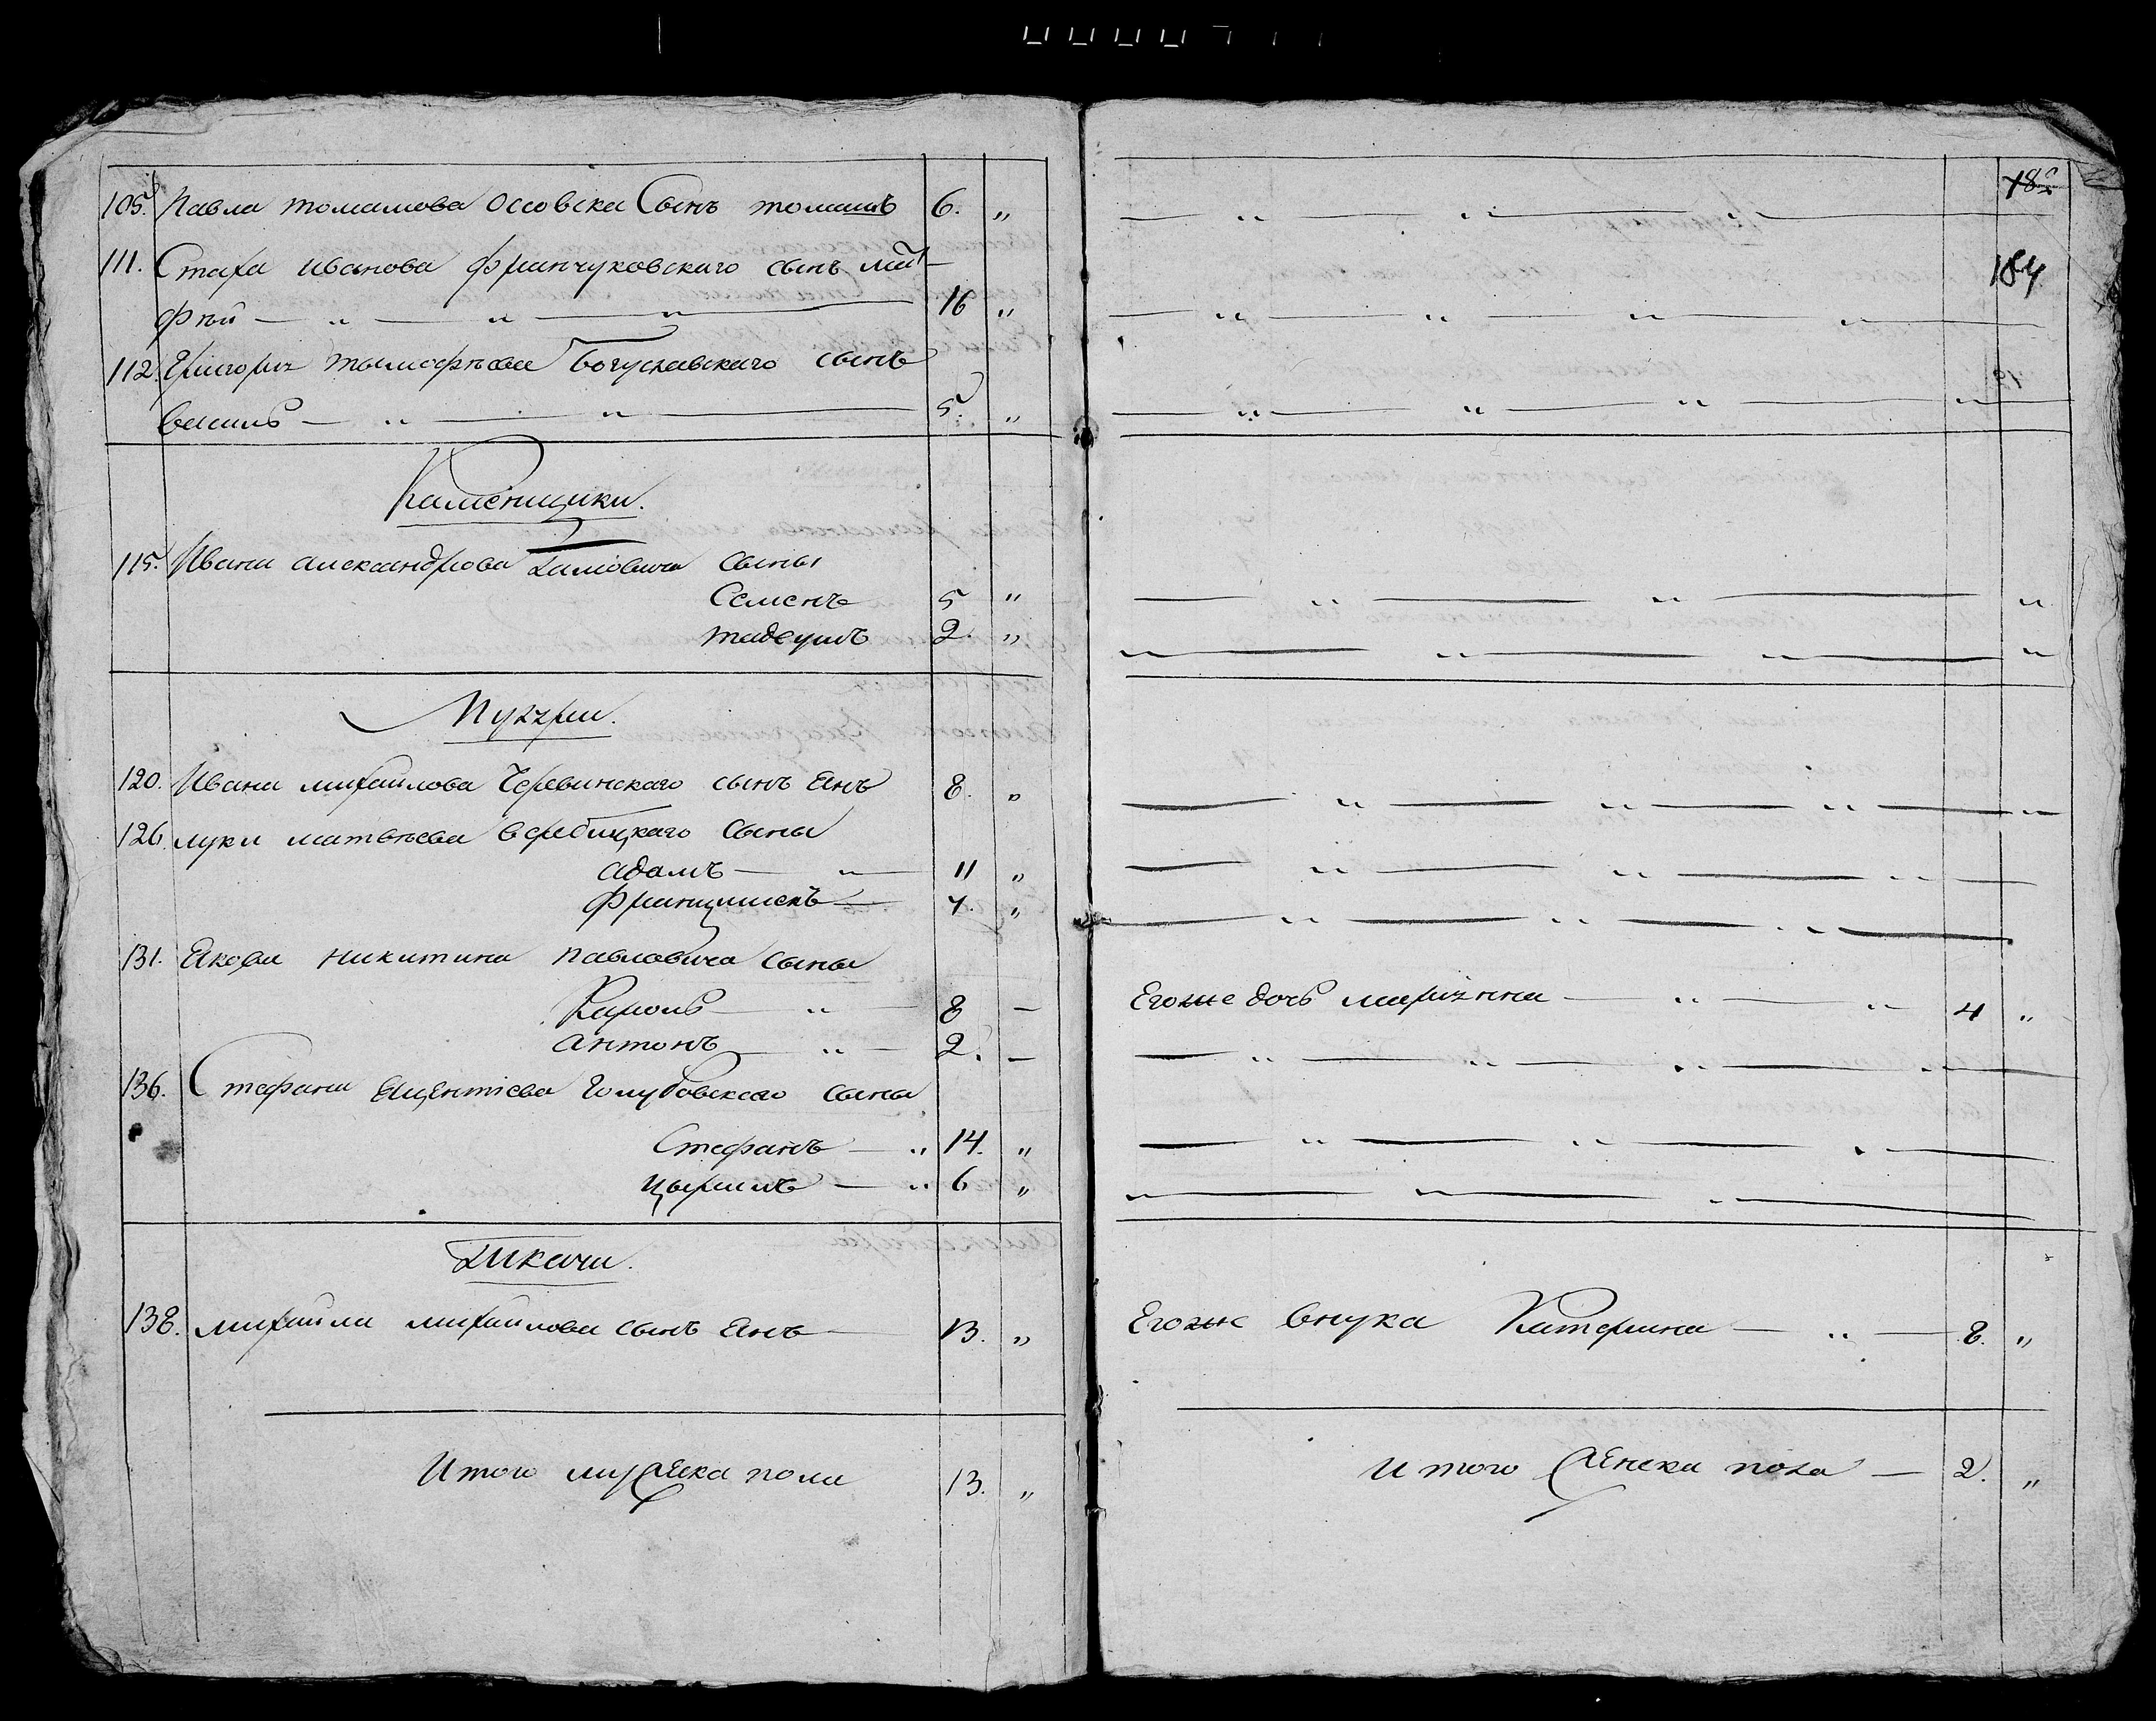 105. Павла томашова Оссовска Сынъ томашъ 6. „
111. Стаха иванова франчуковскаго сынъ мат-
фѣй — „ — „ — „ — 16 „
112. Григорія тымофѣева Богуславскаго сынъ
василь — „ — „ — 5. „
Каменщики.
115. Ивана александрова сыны
Семенъ 5 „
тадеушъ 2. „
120. Ивана михайлова Черевинскаго сынъ Янъ 8. „
126. луки матвѣева вербицкаго Сыны
адамъ — „ — 11 „
францишекъ — 7. „
131. Якова никитина павловича сыны
Кароль — „ — 8 —
антонъ — „ — 2. —
136. Стефана Винцентіева Голубовскаго сыны
Стефанъ — „ 14. „
цырилъ — „ 6 „
Ткачи.
138. михайла михайлова сынъ Янъ — 13. „
Итого мужеска пола 13. „
184
Егоже дочь маріянна — „ — „ 4 „
Егоже внука Катерина — „ — 8. „
Итого женска пола — 2. „